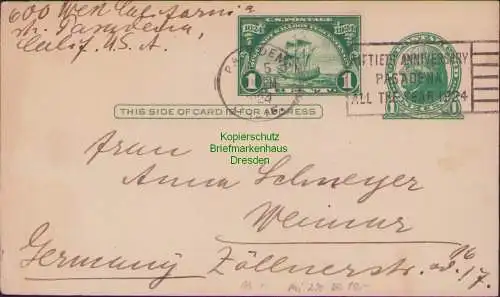 600 West California
st. Pasadena,
Calif. U.S.A.
U.S. POSTAGE
1624 1924
1 1
CENTS
PASADENA
FIFTIETH ANNIVERSARY
PASADENA
ALL THE YEAR 1924
THIS SIDE OF CARD IS FOR ADDRESS
Kopierschutz
Briefmarkenhaus
Dresden
Frau
Anna Schmeyer
Weimar
Germany Zöllnerstr. 16
od. 17.